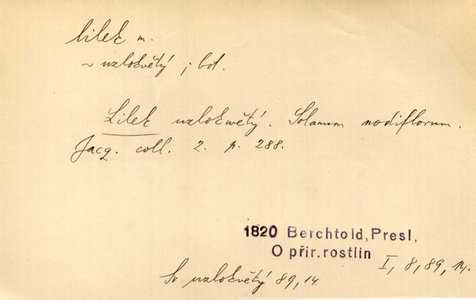 lilek m.
~ uzlokvětý ; bot.
Lilek uzlokwětý. Solanum nodiflorum.
Jacq. coll. 2. p. 288.
1820 Berchtold, Presl,
O přir. rostlin I, 8, 89, 14.
Sv. uzlokvětý 89, 14